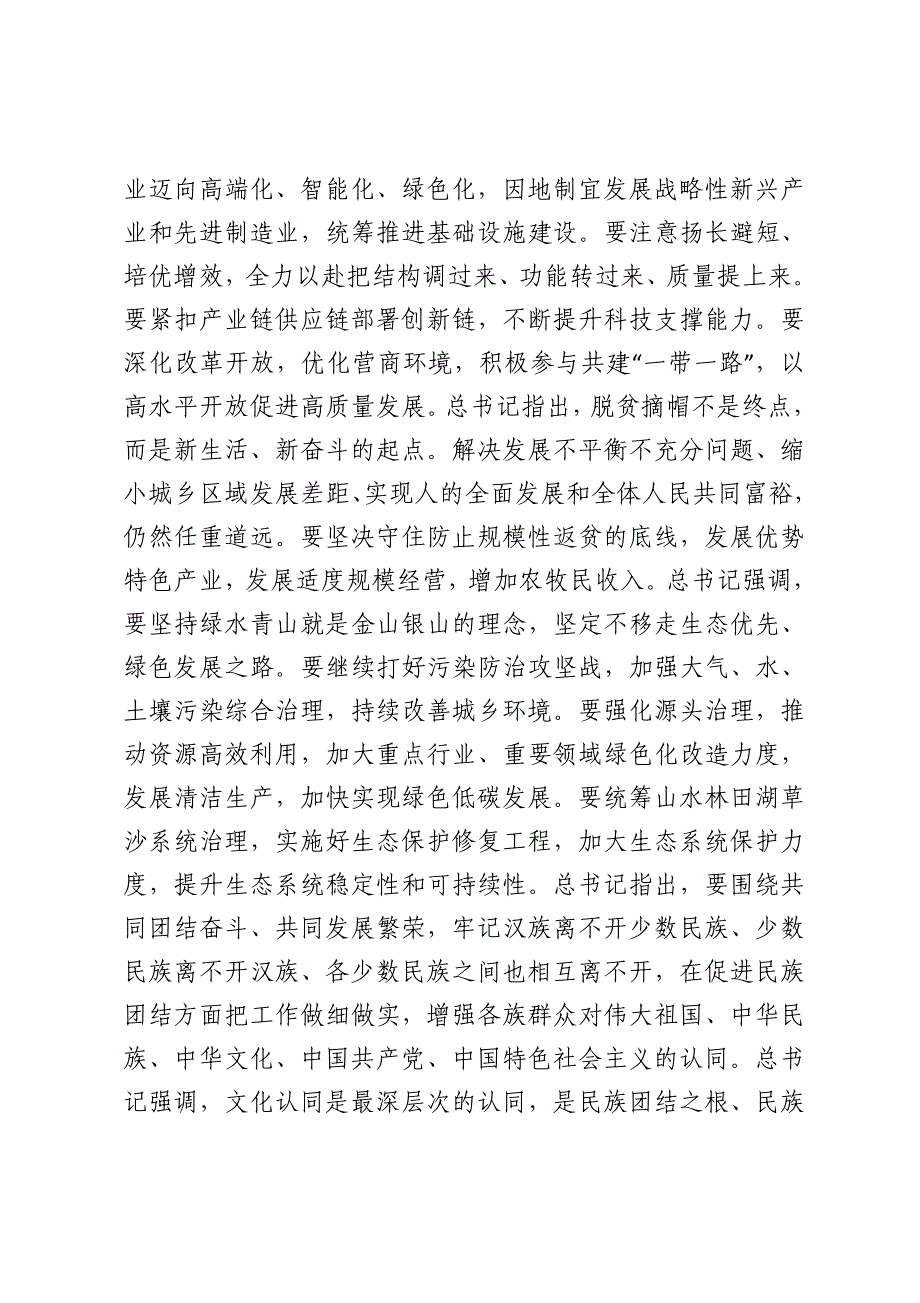 业迈向高端化、智能化、绿色化，因地制宜发展战略性新兴产
业和先进制造业，统筹推进基础设施建设。要注意扬长避短、
培优增效，全力以赴把结构调过来、功能转过来、质量提上来。
要紧扣产业链供应链部署创新链，不断提升科技支撑能力。要
深化改革开放，优化营商环境，积极参与共建“一带一路”，以
高水平开放促进高质量发展。总书记指出，脱贫摘帽不是终点，
而是新生活、新奋斗的起点。解决发展不平衡不充分问题、缩
小城乡区域发展差距、实现人的全面发展和全体人民共同富裕，
仍然任重道远。要坚决守住防止规模性返贫的底线，发展优势
特色产业，发展适度规模经营，增加农牧民收入。总书记强调，
要坚持绿水青山就是金山银山的理念，坚定不移走生态优先、
绿色发展之路。要继续打好污染防治攻坚战，加强大气、水、
土壤污染综合治理，持续改善城乡环境。要强化源头治理，推
动资源高效利用，加大重点行业、重要领域绿色化改造力度，
发展清洁生产，加快实现绿色低碳发展。要统筹山水林田湖草
沙系统治理，实施好生态保护修复工程，加大生态系统保护力
度，提升生态系统稳定性和可持续性。总书记指出，要围绕共
同团结奋斗、共同发展繁荣，牢记汉族离不开少数民族、少数
民族离不开汉族、各少数民族之间也相互离不开，在促进民族
团结方面把工作做细做实，增强各族群众对伟大祖国、中华民
族、中华文化、中国共产党、中国特色社会主义的认同。总书
记强调，文化认同是最深层次的认同，是民族团结之根、民族